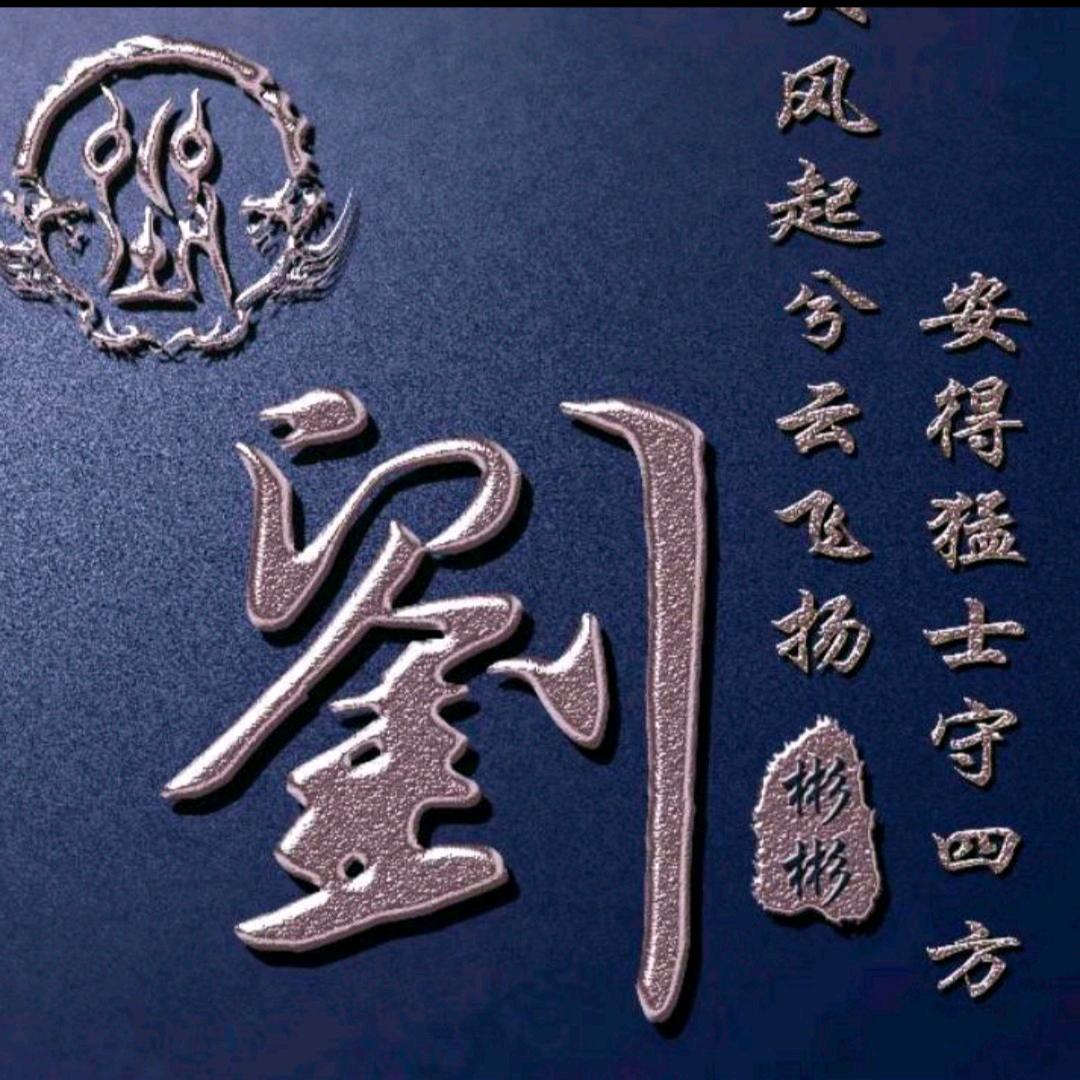 劉
大风起兮云飞扬
安得猛士守四方
彬彬